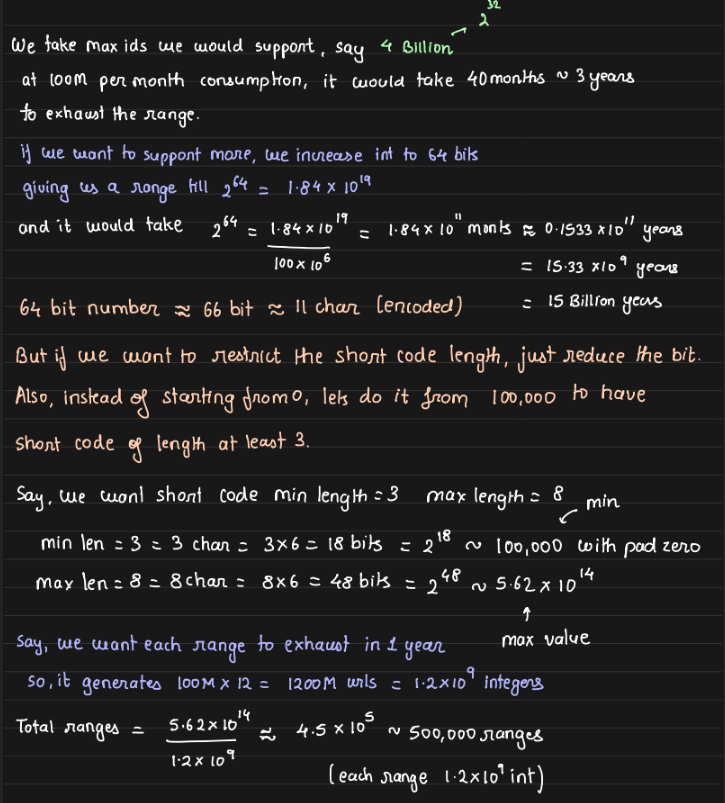 2^32
We take max ids we would support, say 4 Billion
at 100M per month consumption, it would take 40 months ~ 3 years
to exhaust the range.
if we want to support more, we increase int to 64 bits
giving us a range till 2^64 = 1.84 x 10^19
and it would take 2^64 = 1.84 x 10^19 / 100 x 10^6 = 1.84 x 10^11 monts ≈ 0.1533 x 10^11 years
= 15.33 x 10^9 years
= 15 Billion years
64 bit number ≈ 66 bit ≈ 11 char (encoded)
But if we want to restrict the short code length, just reduce the bit.
Also, instead of starting from 0, lets do it from 100,000 to have
short code of length at least 3.
Say, we want short code min length = 3 max length = 8
min
min len = 3 = 3 char = 3x6 = 18 bits = 2^18 ~ 100,000 with pad zero
max len = 8 = 8 char = 8x6 = 48 bits = 2^48 ~ 5.62 x 10^14
max value
Say, we want each range to exhaust in 1 year
so, it generates 100M x 12 = 1200M urls = 1.2x10^9 integers
Total ranges = 5.62 x 10^14 / 1.2 x 10^9 ≈ 4.5 x 10^5 ~ 500,000 ranges
(each range 1.2x10^9 int)